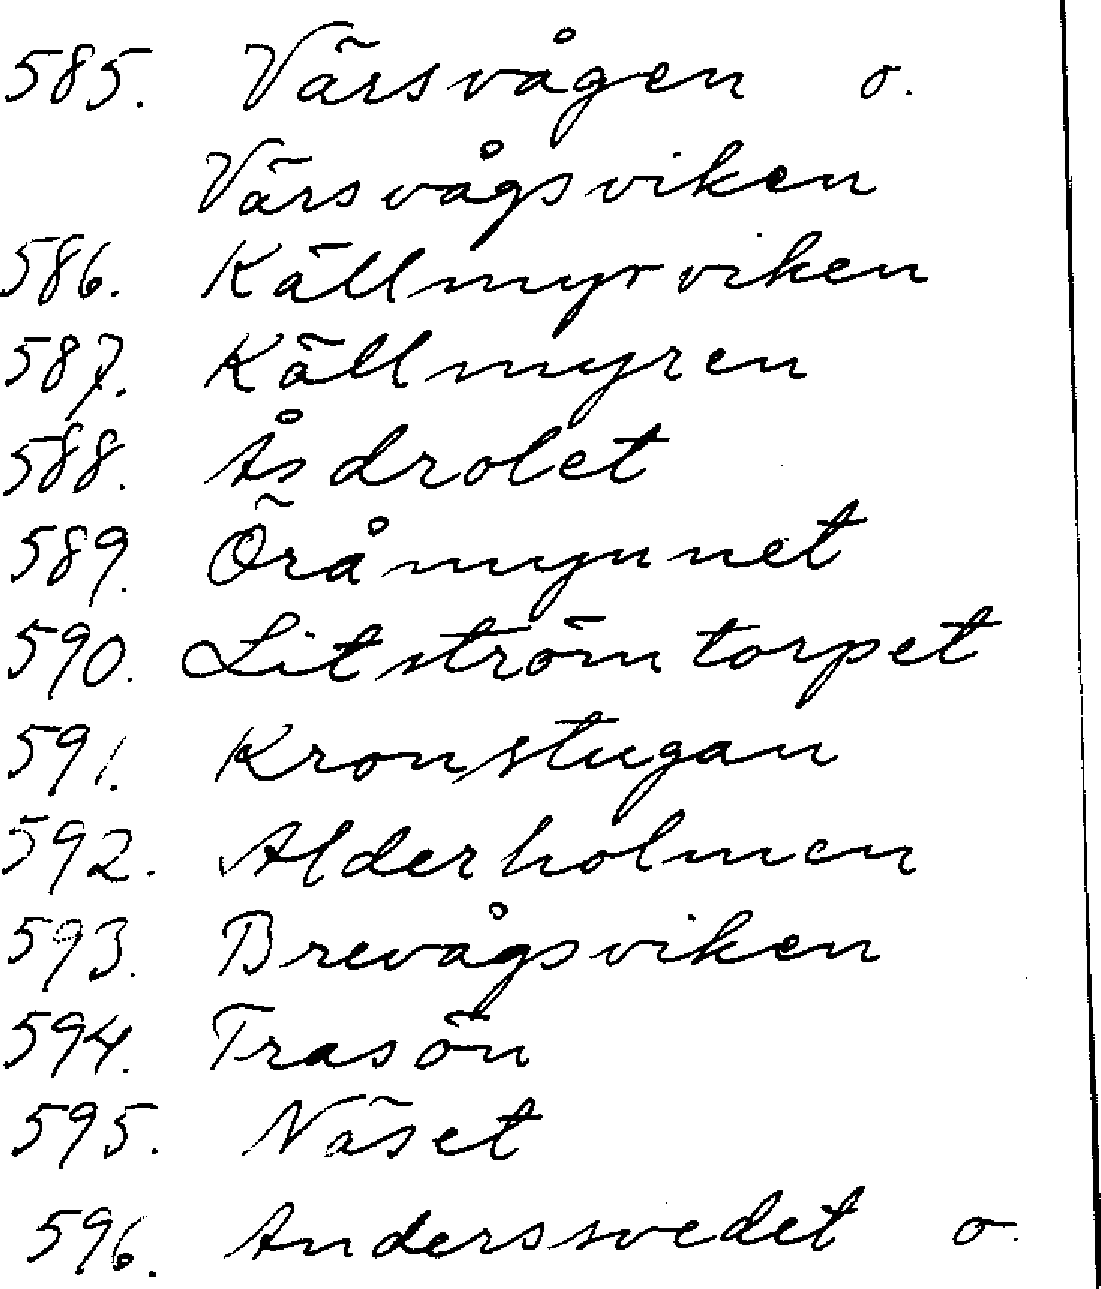 585. Värsvågen o.
Värsvågsviken
586. Källmyrviken
587. Källmyren
588. Åsdrolet
589. Öråmynnet
590. Litströmtorpet
591. Kronstugan
592. Alderholmen
593. Brevågsviken
594. Trasön
595. Näset
596. Anderssvedet o.